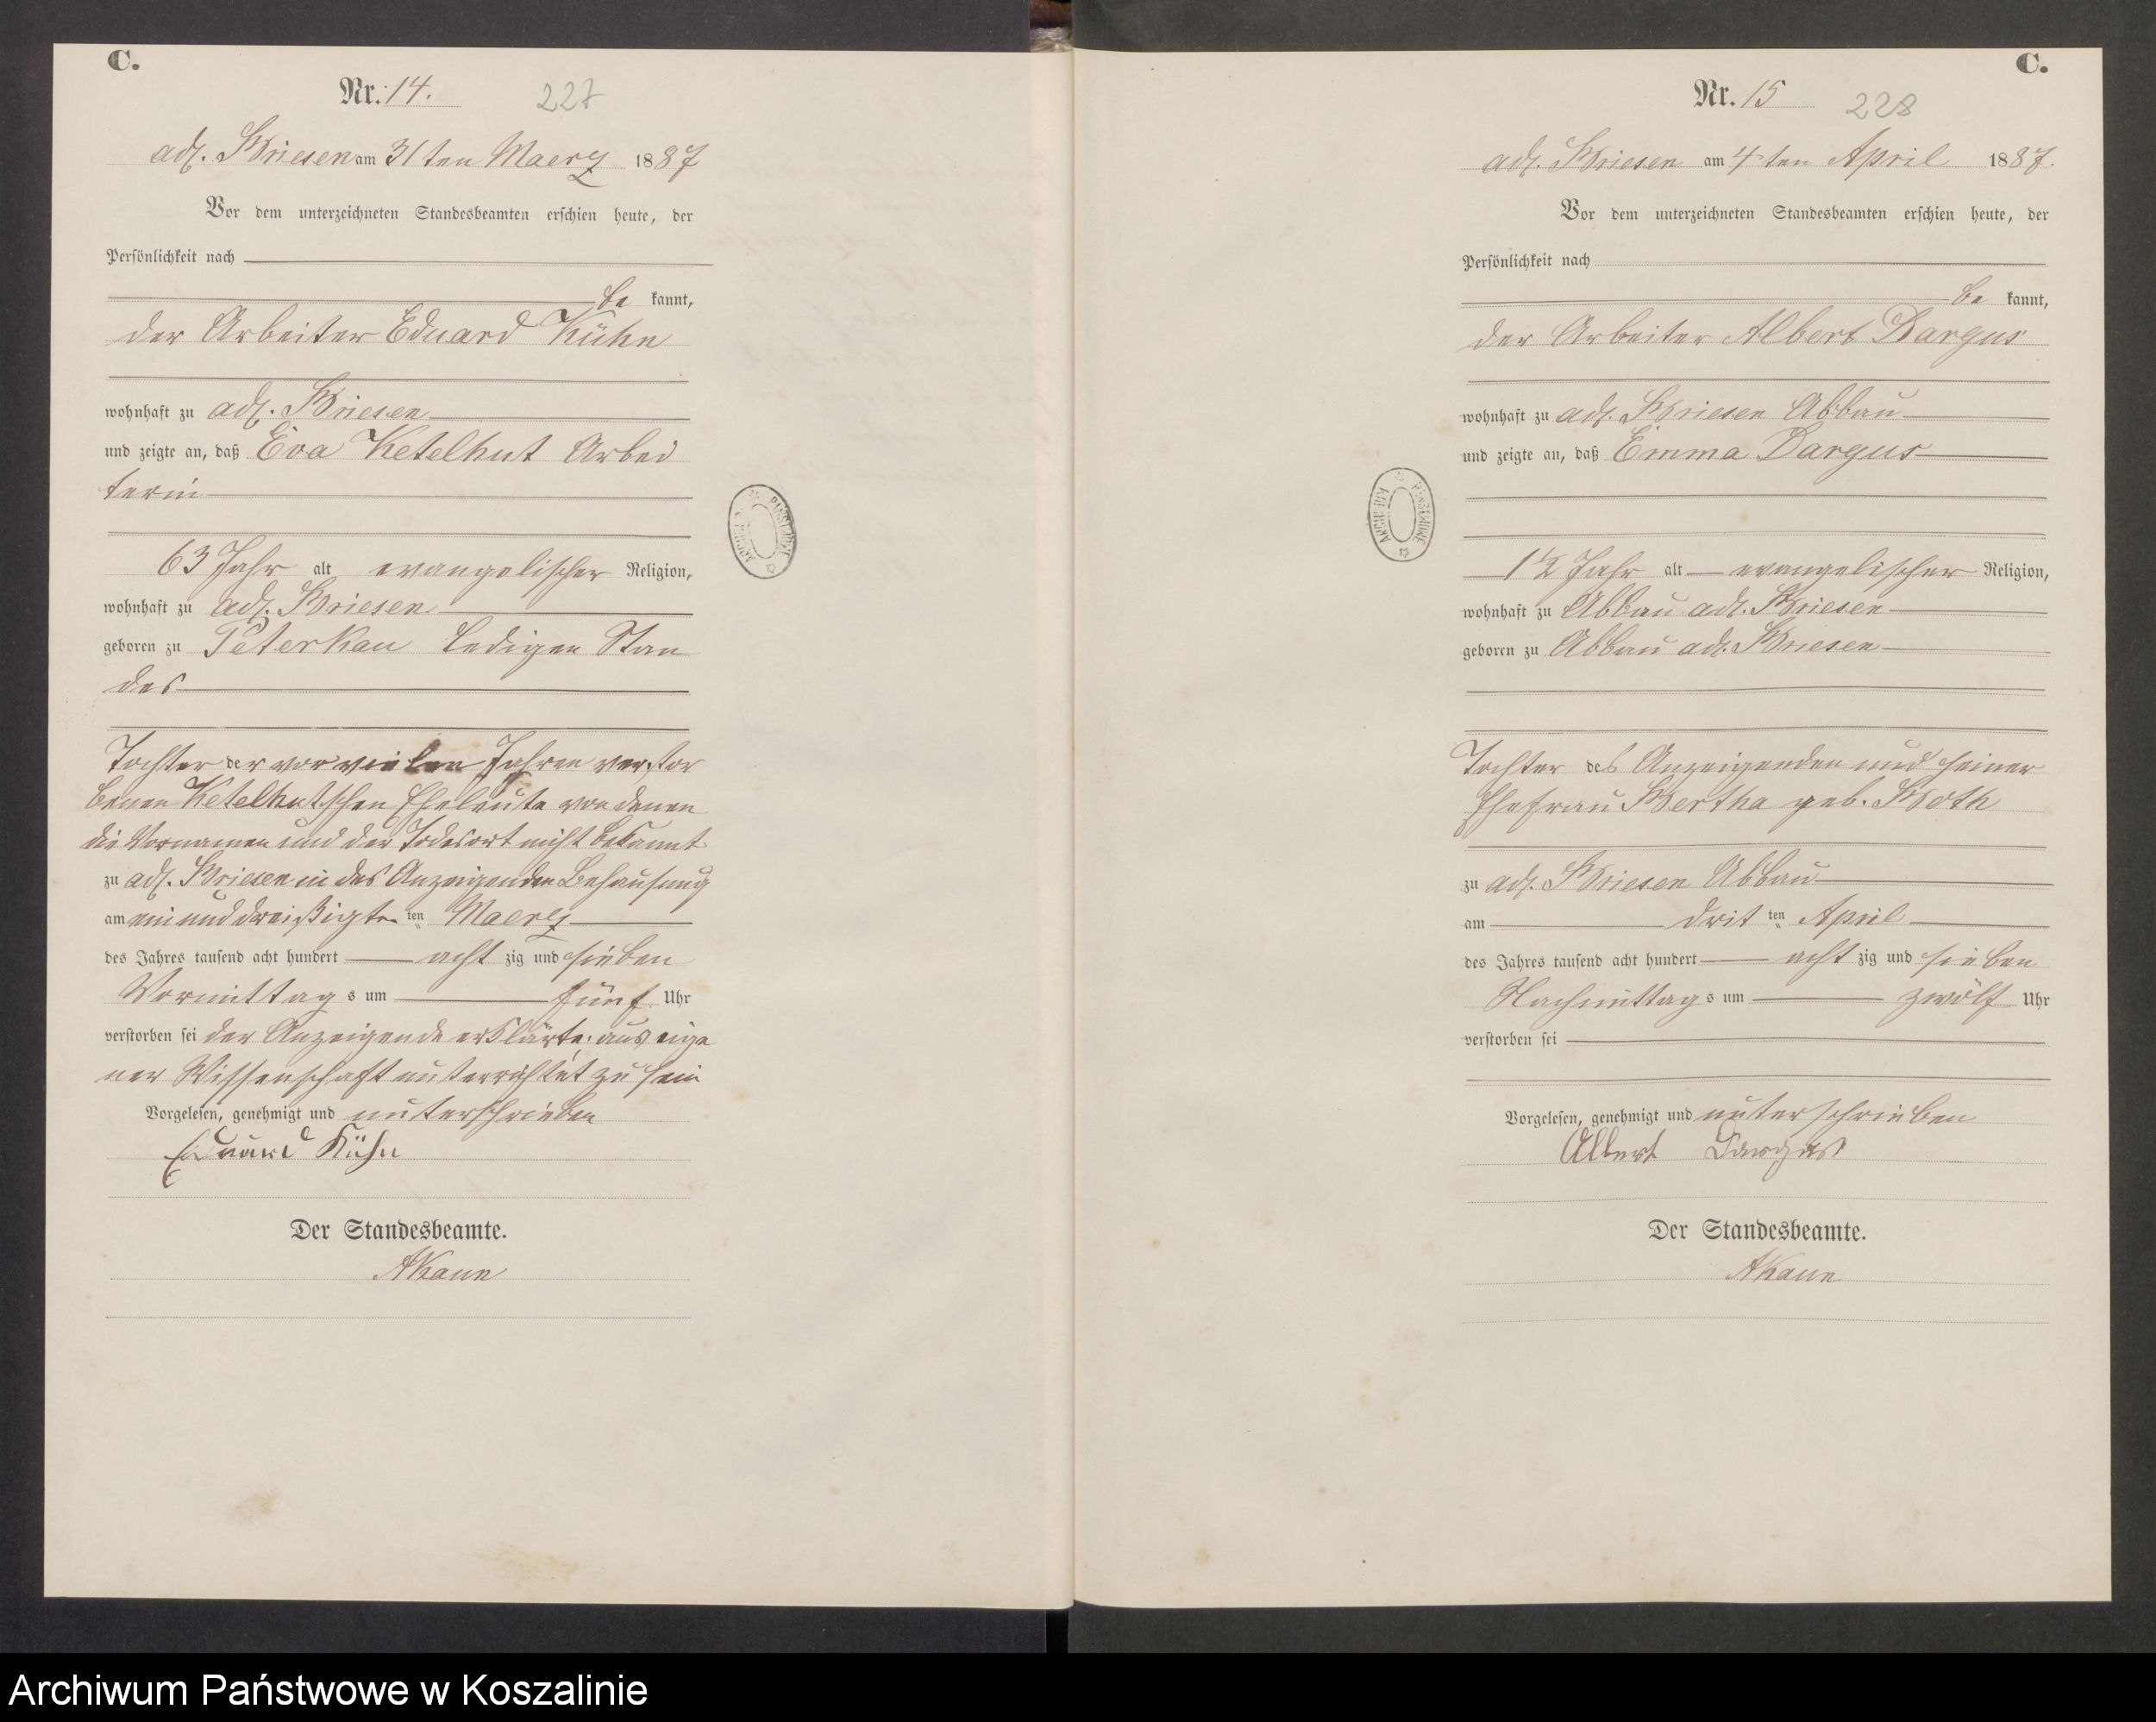 C.
Nr. 14. 227
adl. Briesen am 31 ten Maerz 1887
Vor dem unterzeichneten Standesbeamten erschien heute, der
Persönlichkeit nach
be kannt,
der Arbeiter Eduard Kühn
wohnhaft zu adl. Briesen
und zeigte an, daß Eva Ketelhut Arbei
terin
63 Jahr alt evangelischer Religion,
wohnhaft zu adl. Briesen
geboren zu Peterkau ledigen Stan
des
Tochter der vor vielen Jahren verstor
benen Ketelhutschen Eheleute von denen
die Vornamen und der Todesort nicht bekannt
zu adl. Briesen in des Anzeigenden Behausung
am ein und dreißigten ten Maerz
des Jahres tausend acht hundert acht zig und sieben
Vormittag s um fünf Uhr
verstorben sei der Anzeigende erklärte, aus eige
ner Wissenschaft unterrichtet zu sein
Vorgelesen, genehmigt und unterschrieben
Eduard Kühn
Der Standesbeamte.
AKaun
C.
Nr. 15 228
adl. Briesen am 4 ten April 1887.
Vor dem unterzeichneten Standesbeamten erschien heute, der
Persönlichkeit nach
be kannt,
der Arbeiter Albert Dargus
wohnhaft zu adl. Briesen Abbau
und zeigte an, daß Emma Dargus
1 1/2 Jahr alt evangelischer Religion,
wohnhaft zu Abbau adl. Briesen
geboren zu Abbau adl. Briesen
Tochter des Anzeigenden und seiner
Ehefrau Bertha geb. Both
zu adl. Briesen Abbau
am drit ten April
des Jahres tausend acht hundert acht zig und sieben
Nachmittag s um zwölf Uhr
verstorben sei
Vorgelesen, genehmigt und unterschrieben
Albert Dargus
Der Standesbeamte.
AKaun
Archiwum Państwowe w Koszalinie